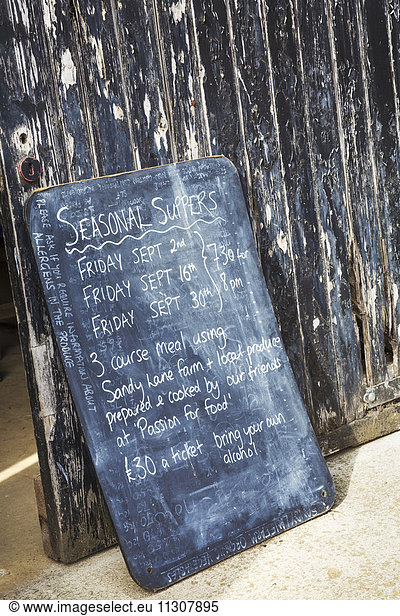 SEASONAL SUPPERS
FRIDAY SEPT 2nd
FRIDAY SEPT 16th
FRIDAY SEPT 30th
7.30 for
8pm
3 course meal using
Sandy Lane Farm + local produce
prepared & cooked by our friends
at 'Passion for food'
£30 a ticket bring your own
alcohol.
PLEASE ASK IF YOU REQUIRE INFORMATION ABOUT
ALLERGENS IN THE PRODUCE
www.agefotostock.com
11307895